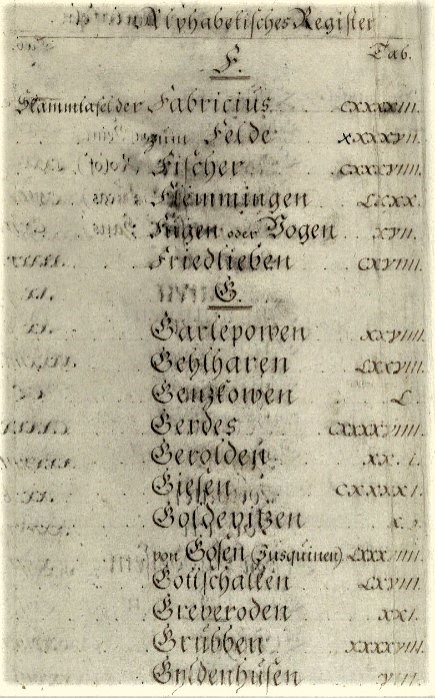 Alphabetisches Register
Tab.
F.
Stammtafel der Fabricius. CXXXXIII.
zum Felde XXXXVII.
Fischer CXXXVIII.
Flemmingen LXXX.
Fügen oder Vogen XVII.
Friedlieben CXVIIII.
G.
Garlepowen XXVIII.
Gehlharen LXXVIII.
Genzkowen L.
Gerdes CXXXXVIIII.
Gerolden XX.I.
Giesen CXXXXI.
Goldevitzen X.
von Gosen (Zusquinen) LXXXVIIII.
Gottschalken LXVIII.
Greveroden XXI.
Grubben XXXXVIII.
Gyldenhusen VIII.